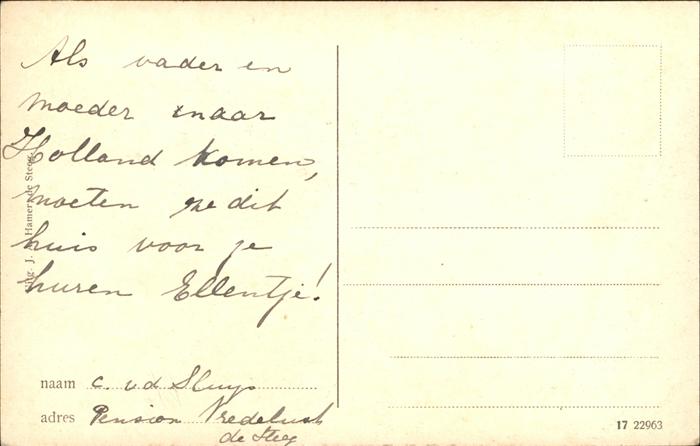 Als vader en
moeder naar
Holland komen,
moeten ze dit
huis voor je
huren Ellentje!
Uitg. J. Hamer, de Steeg
naam c. v d Sluys
adres Pension Vredelust
de Steeg
17 22963